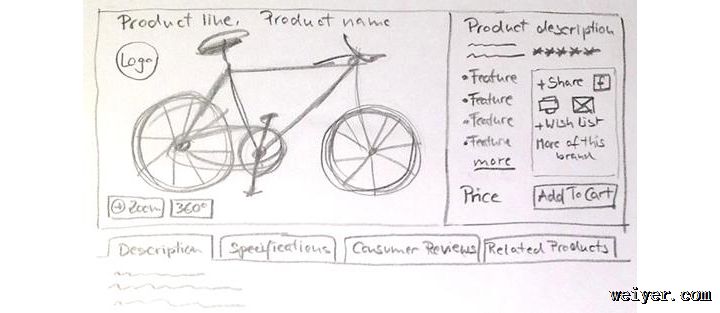 Product line, Product name
Logo
Zoom
360°
Product description
*****
• Feature
• Feature
• Feature
• Feature
more
+ Share f
+ Wish List
More of this
brand
Price
Add To Cart
Description
Specifications
Consumer Reviews
Related Products
weiyer.com